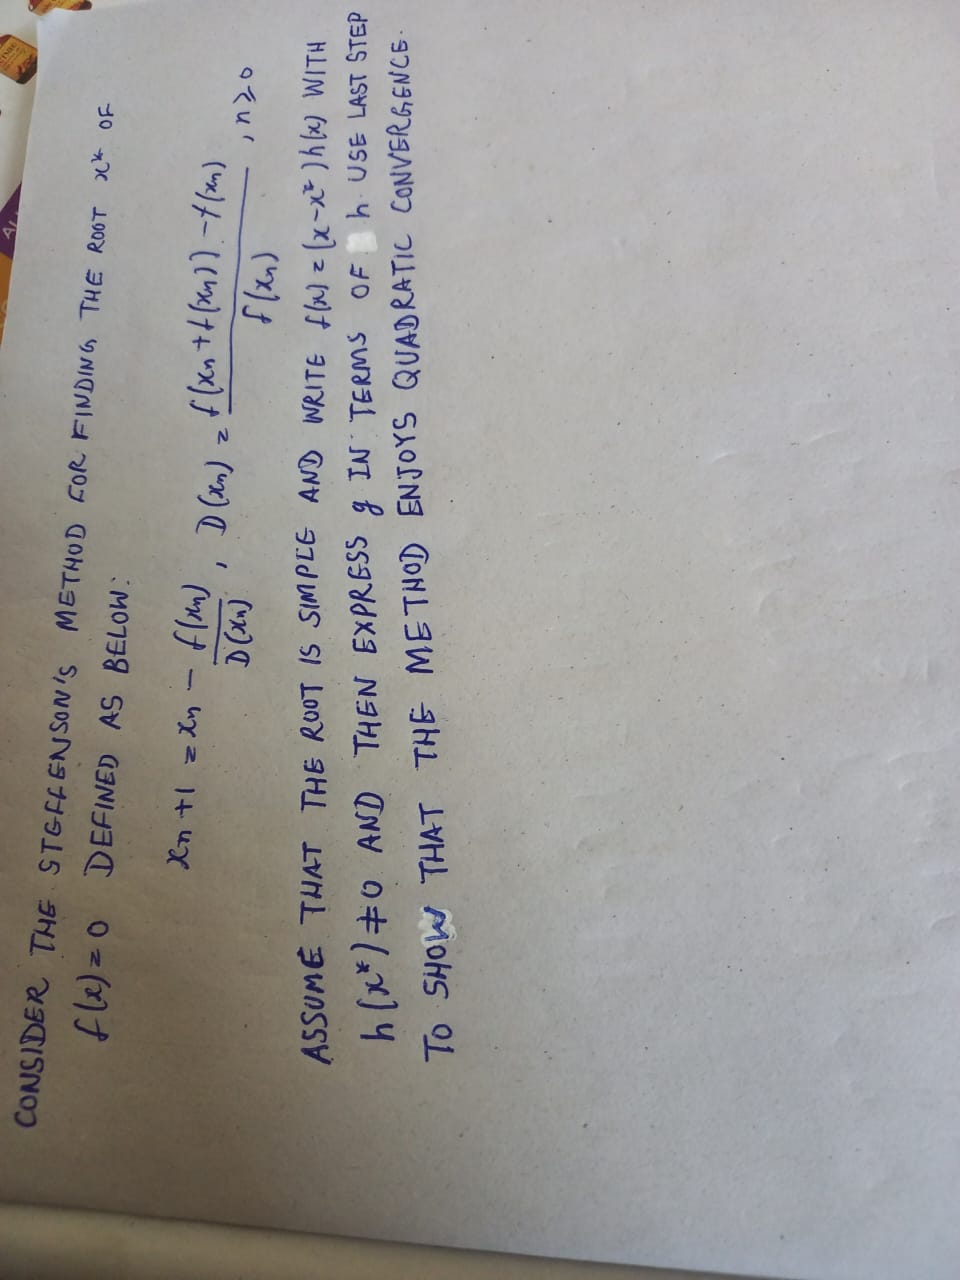 CONSIDER THE STEFFENSON'S METHOD FOR FINDING THE ROOT x* OF
f(x)=0 DEFINED AS BELOW:
xn+1 = xn - f(xn)/D(xn), D(xn) = f(xn+f(xn))-f(xn)/f(xn), n≥0
ASSUME THAT THE ROOT IS SIMPLE AND WRITE f(x)=(x-x*)h(x) WITH
h(x*)≠0 AND THEN EXPRESS g IN TERMS OF h. USE LAST STEP
TO SHOW THAT THE METHOD ENJOYS QUADRATIC CONVERGENCE.